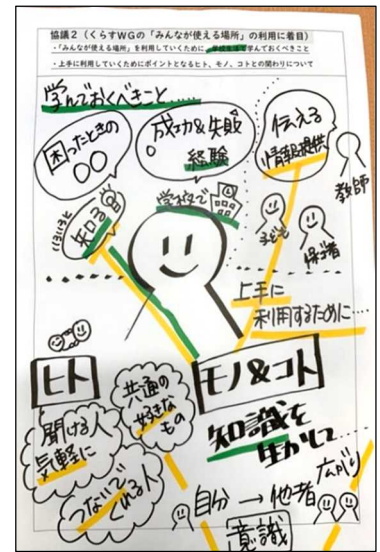 協議２（くらすWGの「みんなが使える場所」の利用に着目）
・「みんなが使える場所」を利用していくために、学校生活で学んでおくべきこと
・上手に利用していくためにポイントとなるヒト、モノ、コトとの関わりについて
学んでおくべきこと……
困ったときの
○○
成功&失敗
経験
伝える
情報提供
教師
いろいろと
知る
学校で
子ども
保護者
上手に
利用するために…
ヒト
モノ&コト
聞ける人
気軽に
共通の
好きな
もの
つないで
くれる人
知識を
生かして……
広がり
自分→他者
意識